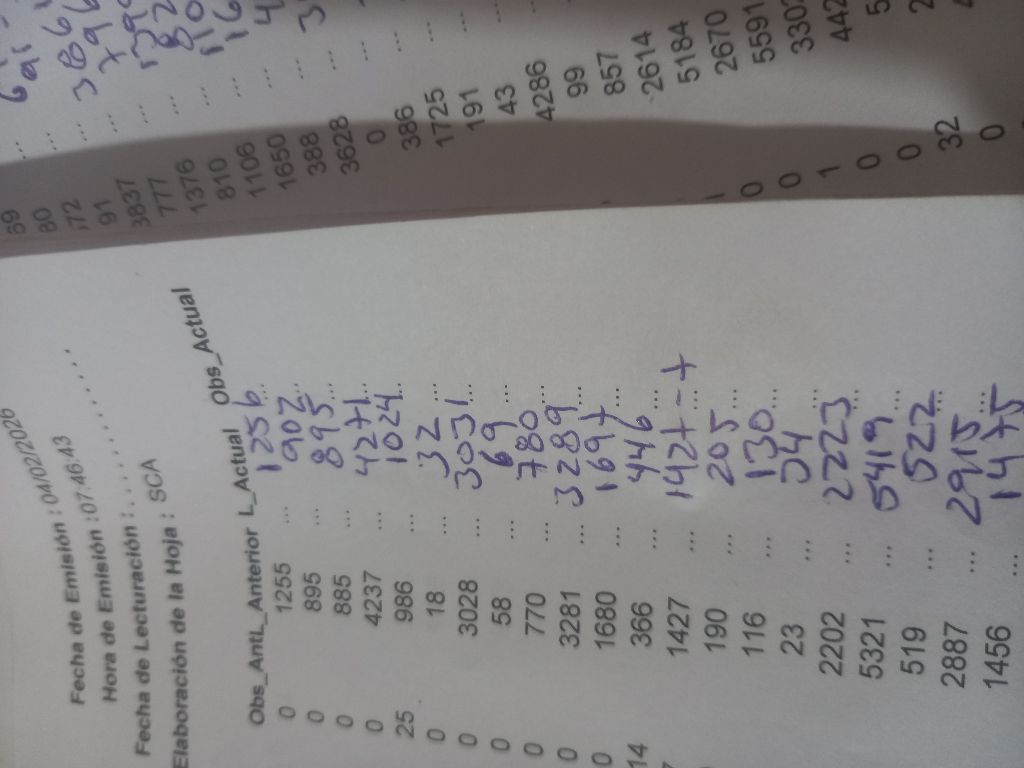 Fecha de Emisión : 04/02/2026
Hora de Emisión :07:46:43
Fecha de Lecturación : . . . . . . . . . . . . .
Elaboración de la Hoja : SCA
Obs_Ant L_Anterior L_Actual Obs_Actual
0 1255 ... 1256 ...
0 895 ... 902 ...
0 885 ... 895 ...
0 4237 ... 4271 ...
25 986 ... 1024 ...
0 18 ... 32 ...
0 3028 ... 3031 ...
0 58 ... 69 ...
0 770 ... 780 ...
0 3281 ... 3289 ...
0 1680 ... 1697 ...
14 366 ... 446 ...
1427 ... 1427 - - +
190 ... 205 ...
116 ... 130 ...
23 ... 34 ...
2202 ... 2223 ...
5321 ... 5419 ...
519 ... 522 ...
2887 ... 2915 ...
1456 ... 1475
80 ...
91 ...
3837 ...
777 ...
1376 ...
810 ...
1106 ...
1650 ...
388 ...
3628 ...
0 ...
386 ...
1725 ...
191
43
4286
99
857
2614
5184
0 2670
0 5591
1
0
0
32
0